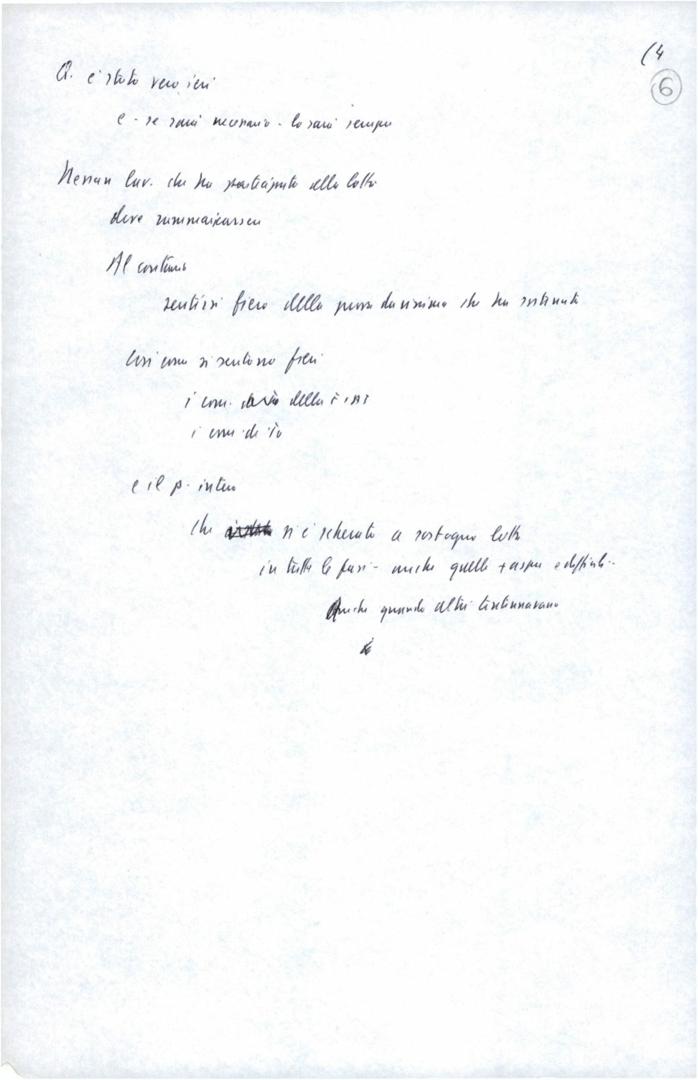 (4
6
Q. è stato vero ieri
e - se sarà necessario - lo sarà sempre
Nessun lav. che ha partecipato alla lotta
deve rammaricarsen
Al contrario
sentirsi fiero della prova durissima che ha sostenuto
Così come si sentono fieri
i com. della
i com. di To
e il p. intero
che si è schierato a sostegno lotta
in tutte le fasi - anche quelle + aspre e difficili..
Anche quando altri tentennavano